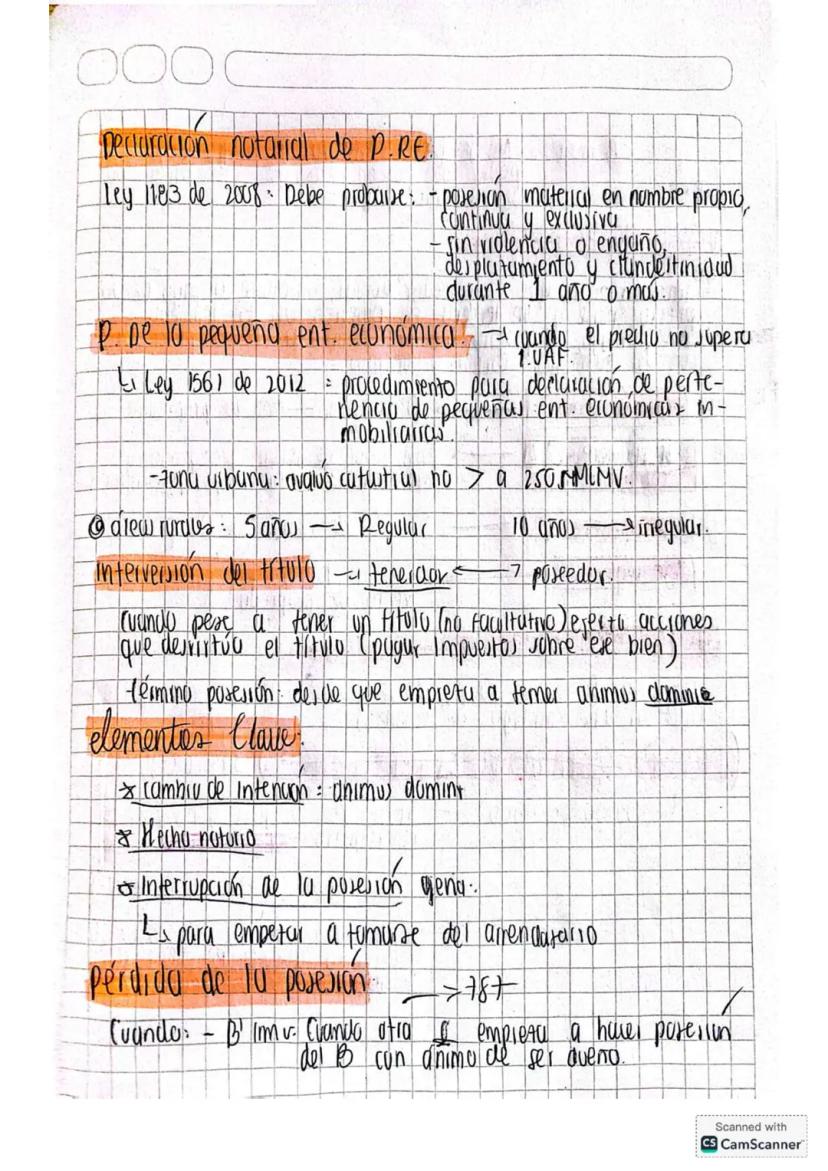 Declaración notarial de P.RE.
Ley 1183 de 2008: Debe probarse: - posesión material en nombre propio,
continua y exclusiva
- sin violencia o engaño,
desplazamiento y clandestinidad
durante 1 año o más.
P. De la pequeña ent. económica. → cuando el predio no supera
1.UAF.
↳ Ley 1561 de 2012 : procedimiento para declaración de perte-
nencia de pequeñas ent. económicas in-
mobiliarias.
- zona urbana: avalúo catastral no > a 250 SMLMV.
áreas rurales: 5 años → Regular 10 años → irregular.
Interversión del título → tenedor ↔ poseedor.
Cuando pese a tener un título (no facultativo) ejecta acciones
que desvirtúa el título (pagar impuestos sobre ese bien)
- término posesión: desde que empieza a temer animus dominie
elementos Clave:
* cambio de intención: animus domini
* Hecho notorio
* Interrupción de la posesión ajena.
↳ para empezar a tomarse del arrendatario
Pérdida de la posesión → 787
Cuando: - B' inmv: Cuando otra empieza a hacer posesión
del B con ánimo de ser dueño.
Scanned with
CS CamScanner